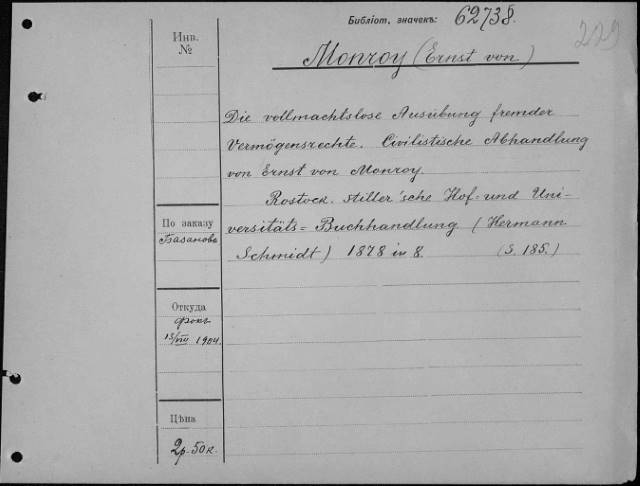 Библіот. значекъ: 62738.
229
Инв.
№
Monroy (Ernst von)
Die vollmachtslose Ausübung fremder
Vermögensrechte. Civilistische Abhandlung
von Ernst von Monroy.
Rostock. Stiller'sche Hof- und Uni-
versitäts=Buchhandlung (Hermann
Schmidt) 1878 in 8. (S. 185.)
По заказу
Базанова
Откуда
Фокъ
13/VIII 1904.
Цѣна
2р. 50к.